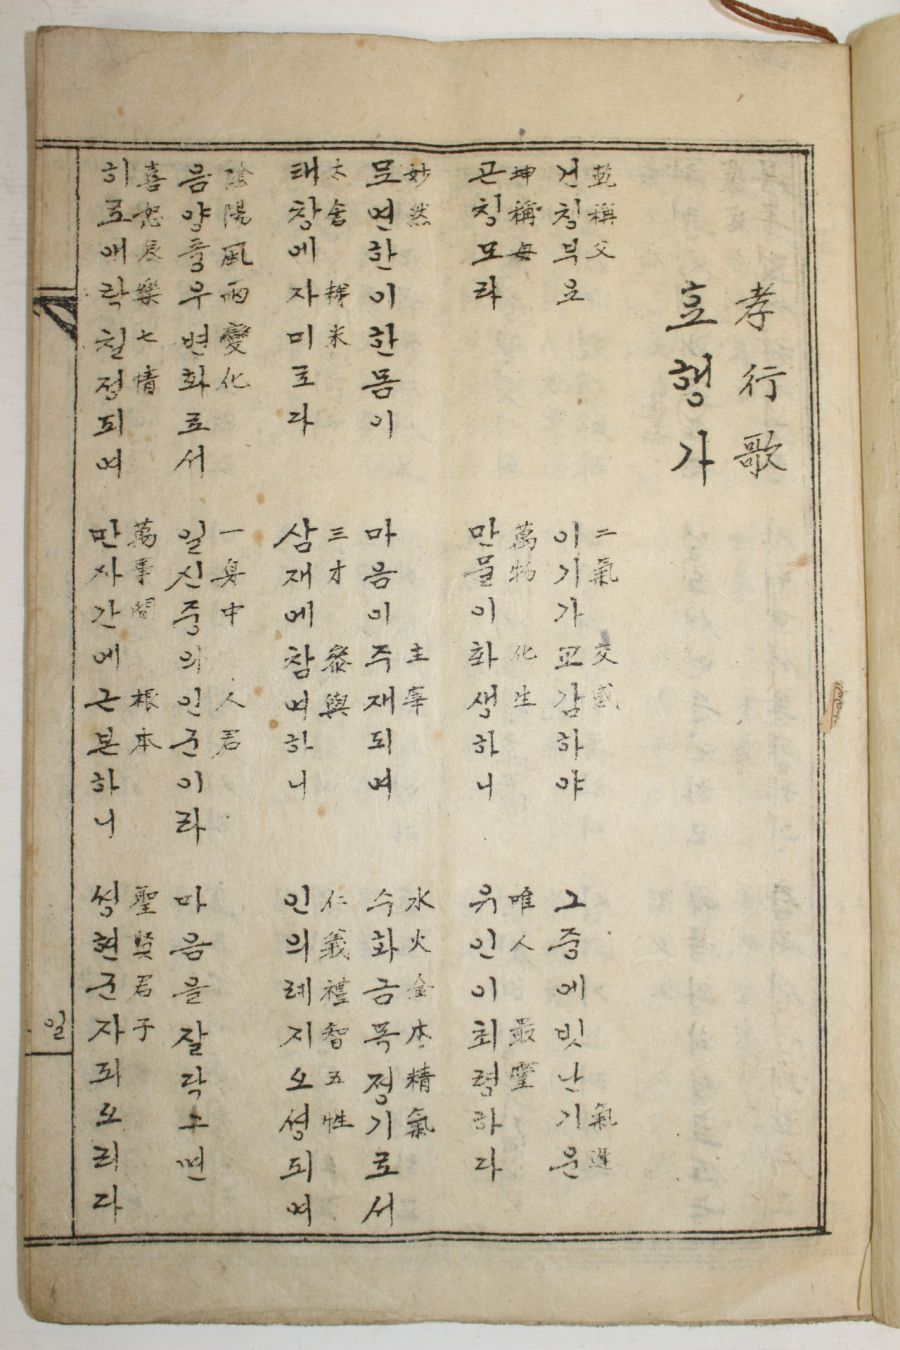 孝行歌
효행가
乾稱父 二氣 交感 氣運
건칭부요 이기가교감하야 그중에빗난기운
坤稱母 萬物 化生 唯人 最靈
곤칭모라 만물이화생하니 유인이최령하다
妙然 主宰 水火金木精氣
묘연한이한몸이 마음이주재되여 수화금목정기로서
太倉 稊米 三才 參與 仁義禮智五性
태창에자미로다 삼재에참여하니 인의례지오셩되여
陰陽風雨變化 一身中 人君
음양풍우변화로서 일신중의인군이라 마음을잘닥그면
喜怒哀樂七情 萬事間 根本 聖賢君子
히로애락칠정되여 만사간에근본하니 성현군자되오리다
일